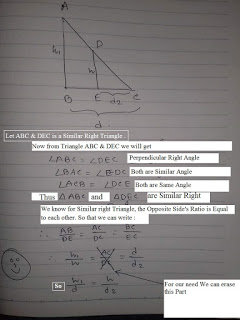 A
D
h₁
h
B E C
d₂
d
Let ABC & DEC is a Similar Right Triangle :
Now from Triangle ABC & DEC we will get
∠ABC = ∠DEC Perpendicular Right Angle
∠BAC = ∠EDC Both are Similar Angle
∠ACB = ∠DCE Both are Same Angle
Thus △ABC and △DEC are Similar Right
We know for Similar right Triangle, the Opposite Side's Ratio is Equal
to each other. So that we can write :
∴ AB/DE = AC/DC = BC/EC
∴ h₁/h = AC/DC = d/d₂
For our need We can erase
this Part
So h₁/d = h/d₂